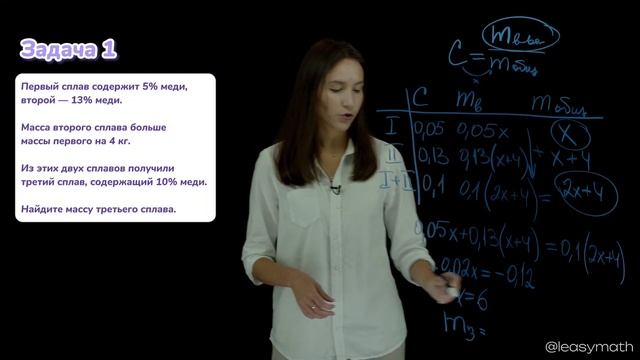 Задача 1
Первый сплав содержит 5% меди,
второй — 13% меди.
Масса второго сплава больше
массы первого на 4 кг.
Из этих двух сплавов получили
третий сплав, содержащий 10% меди.
Найдите массу третьего сплава.
C = m в-ва / m общ
C mв mобщ
I 0,05 0,05x x
II 0,13 0,13(x+4) x+4
I+II 0,1 0,1(2x+4) = 2x+4
0,05x+0,13(x+4) = 0,1(2x+4)
0,02x = -0,12
x=6
m3 =
@leasymath